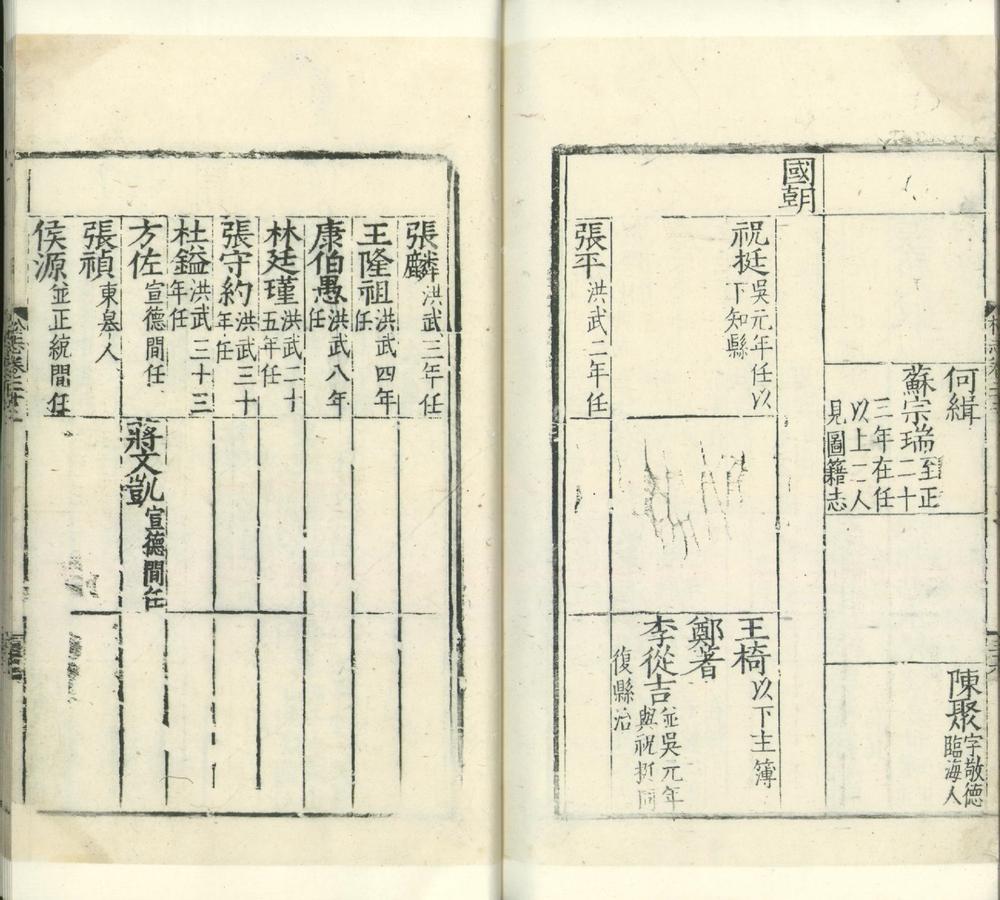 何緝
蘇宗瑞至正二十
三年在任
以上二人
見圖籍志
陳聚字敬德
臨海人
國朝
祝挺吳元年任以
下知縣
王椅以下主簿
鄭著
李從吉並吳元年
與祝挺同
復縣治
張平洪武二年任
張麟洪武三年任
王隆祖洪武四年
任
康伯愚洪武八年
任
林廷瑾洪武二十
五年任
張守約洪武三十
年任
杜鎰洪武三十三
年任
方佐宣德間任
蔣文凱宣德間任
張禎東皋人
侯源並正統間任